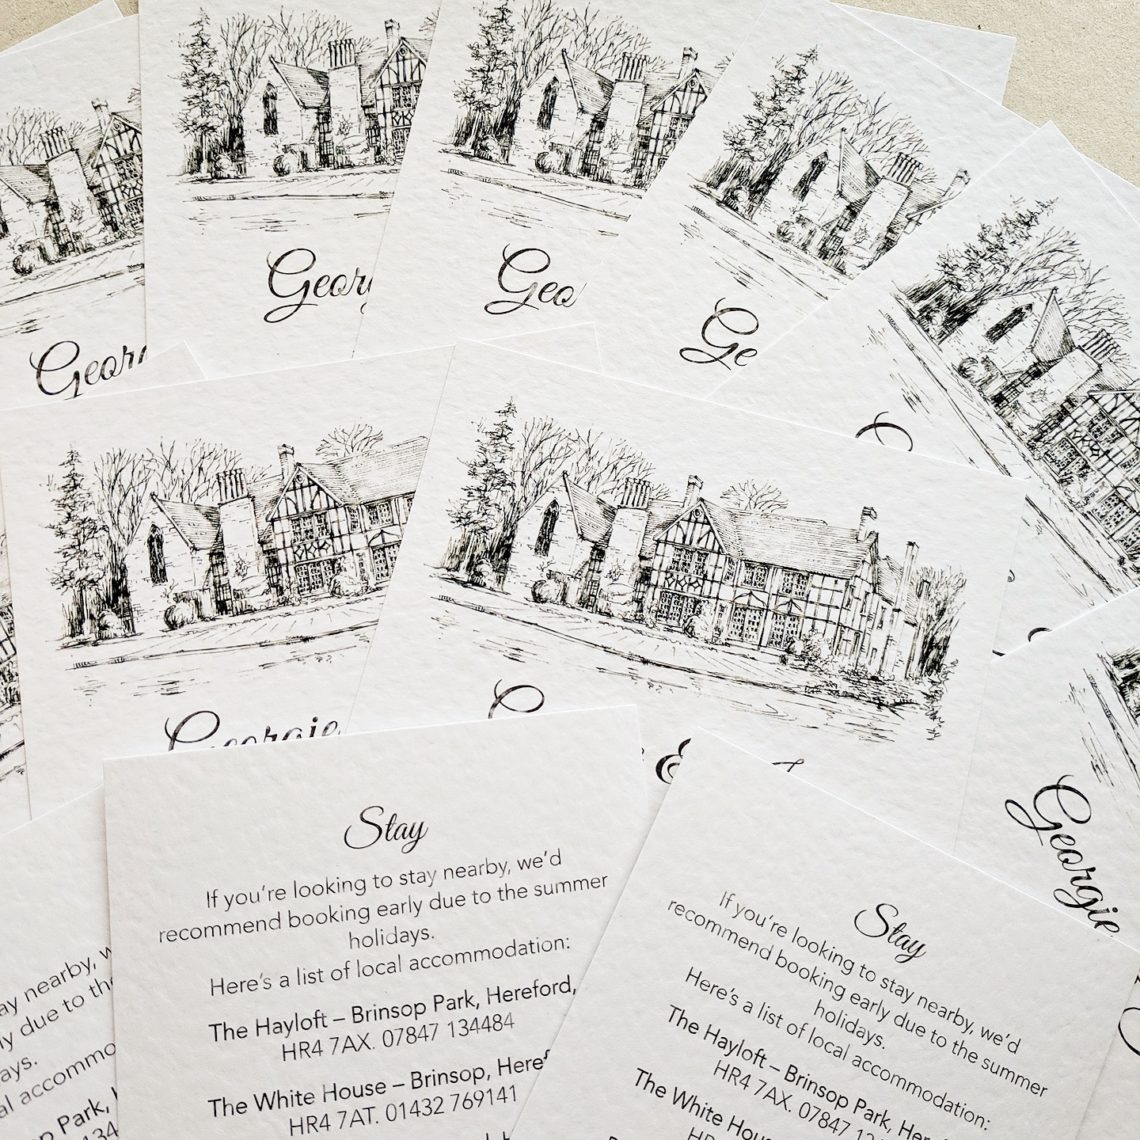 Georg
Geo
Geor
Ge
Georgie
&
Georgie
Stay
If you're looking to stay nearby, we'd
recommend booking early due to the summer
holidays.
Here's a list of local accommodation:
The Hayloft – Brinsop Park, Hereford,
HR4 7AX. 07847 134484
The White House – Brinsop, Heref
HR4 7AT. 01432 769141
Stay
If you're looking to stay nearby, we'd
recommend booking early due to the summer
holidays.
Here's a list of local accommodation:
The Hayloft – Brinsop Park, Her
HR4 7AX. 07847 1
The White House – Brinsop,
ay nearby, w
y due to th
ays.
al accommo
p Park,
134